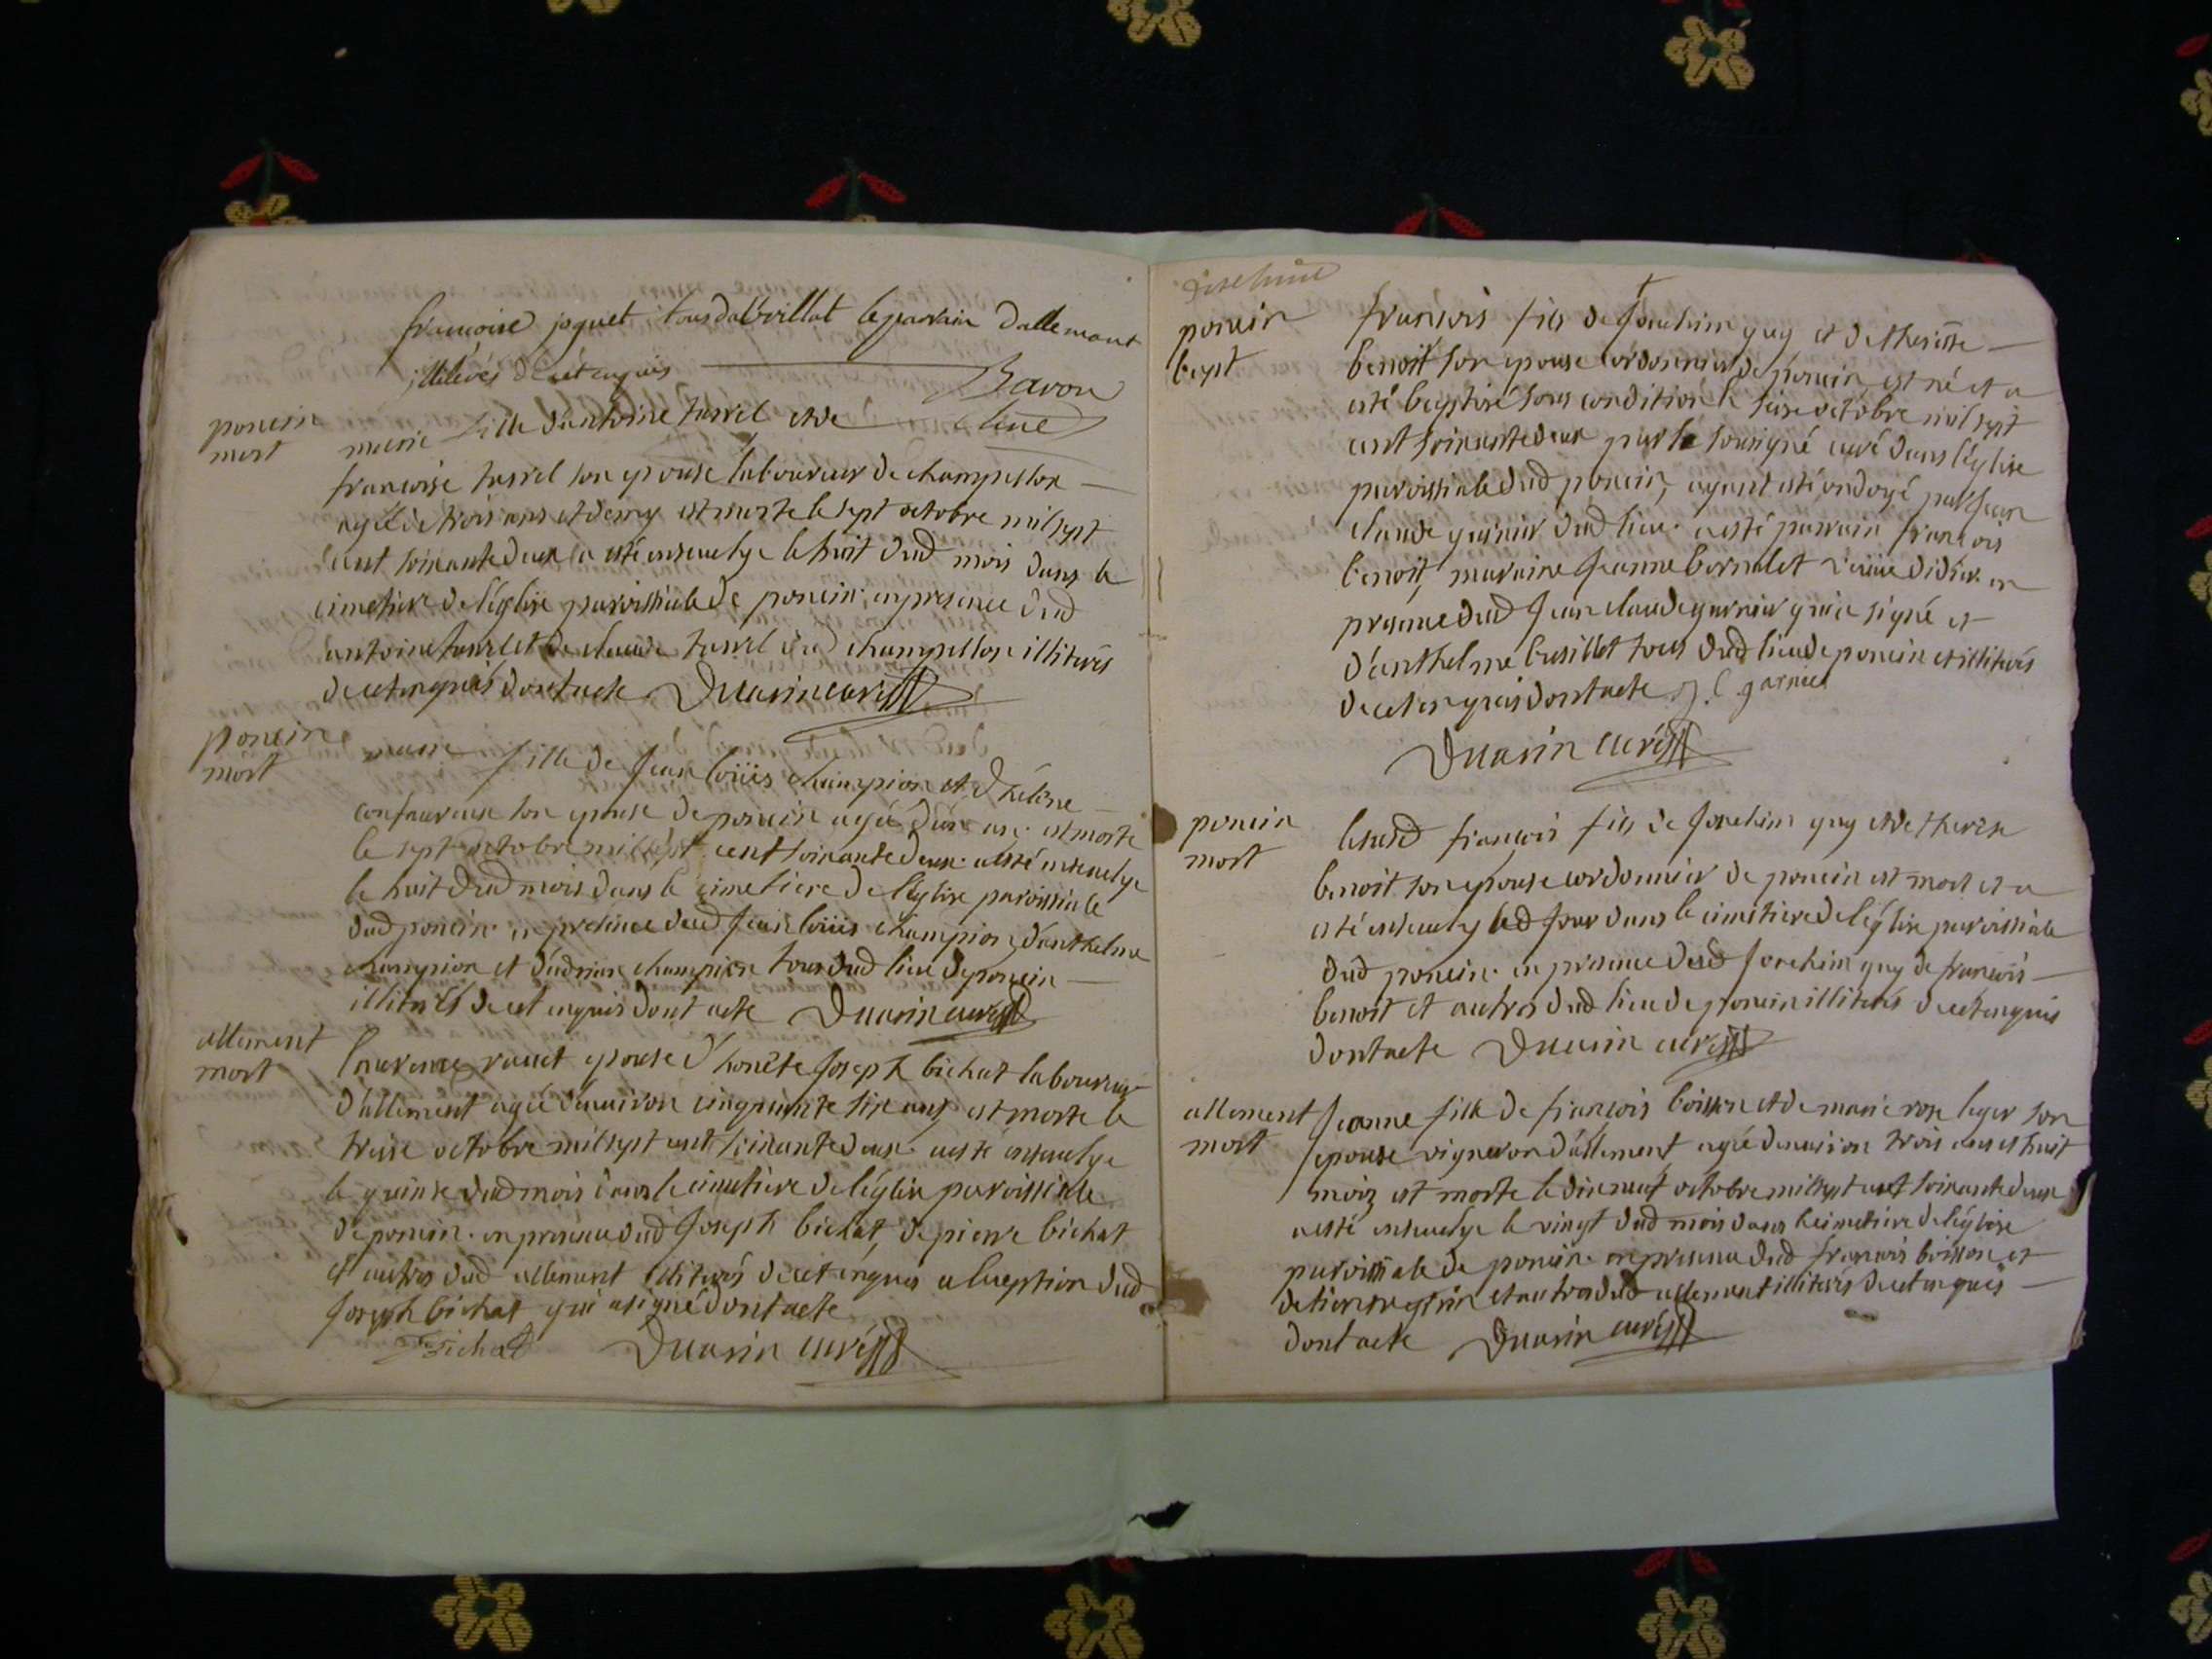 françoise joguet tous dalévillat le parrain dallemant
illiterés de cet enquis Baron
curé
poncin
mort
marie fille d'antoine tassel et de
françoise tassel son epouse laboureur de champollon
agée de trois ans et demy est morte le sept octobre mil sept
cent soixante deux a esté ensevelye le huit dud mois dans le
cimetiere de l'église paroissiale de poncin en presence dud
antoine tassel et de claude tassel dud champollon illiterés
de cet enquis dont acte Duarin curé
poncin
mort
marie fille de jean loüis champion et d'heléne
confavreux son epouse de poncin agée d'un an est morte
le sept octobre mil sept cent soixante deux a esté ensevelye
le huit dud mois dans le cimetiere de l'église paroissiale
dud poncin en presence dud jean loüis champion d'anthelme
champion et d'adrian champion tous dud lieu de poncin
illiterés de cet enquis dont acte Duarin curé
allement
mort
laurence ravet epouse d'honête joseph bichat laboureur
d'allement agée d'environ cinquante six ans est morte le
treise octobre mil sept cent soixante deux a esté ensevelye
le quinze dud mois dans le cimetiere de l'église paroissialle
de poncin en presence dud joseph bichat, de pierre bichat
et autres dud allement illiterés de cet enquis a l'exception dud
joseph bichat qui a signé dont acte
Bichat Duarin curé
poncin
bapt
françois fils de joachim guy et de theresse
benoit son epouse cordonnier de poncin est né et a
esté baptisé sous condition le seise octobre mil sept
cent soixante deux par le sousigné curé dans l'église
paroissiale dud poncin, ayant esté ondoyé par jean
claude garnier dud lieu a esté parrain françois
benoit, maraine jeanne bornalet en
presence dud jean claude garnier qui a signé et
d'anthelme busillet tous dud lieu de poncin et illiterés
de cet enquis dont acte J. C. garnier
Duarin curé
poncin
mort
lesusd françois fils de joachim guy et de therese
benoit son epouse cordonnier de poncin est mort et a
esté ensevely led jour dans le cimetiere de l'église paroissiale
dud poncin en presence dud joachim guy de françois
benoit et autres dud lieu de poncin illiterés de cet enquis
dont acte Duarin curé
allement
mort
jeanne fille de françois boisson et de marie rose leger son
epouse vigneron d'allement agée d'environ trois ans et huit
mois est morte le dix neuf octobre mil sept cent soixante deux
a esté ensevelye le vingt dud mois dans le cimetiere de l'église
paroissiale de poncin en presence dud françois boisson et
et autres dud allement illiterés de cet enquis
dont acte Duarin curé